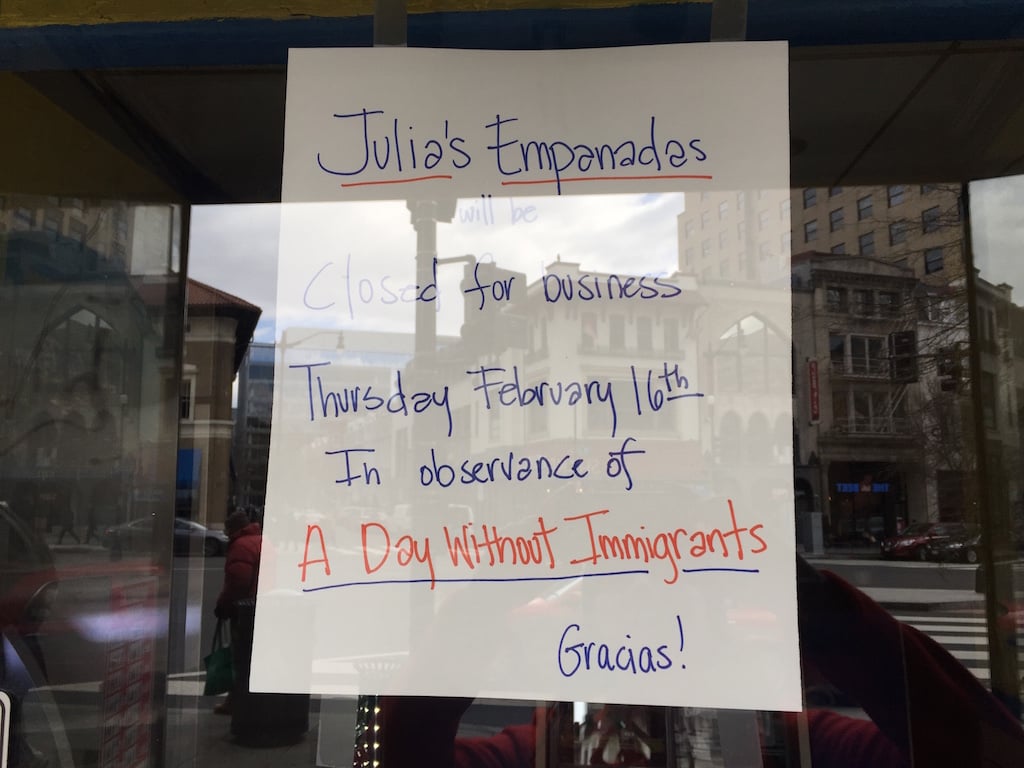 Julia's Empanadas
will be
Closed for business
Thursday February 16th
In observance of
A Day Without Immigrants
Gracias!